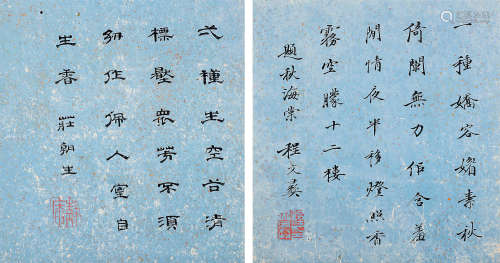 一種嬌容媚素秋
倚闌無力佀含羞
閒情夜半移燈照香
霧空朦十二樓
題秋海棠 程文彝
弌種生空谷清
標壓衆芳不須
紉作佩入室自
生香 莊朝生